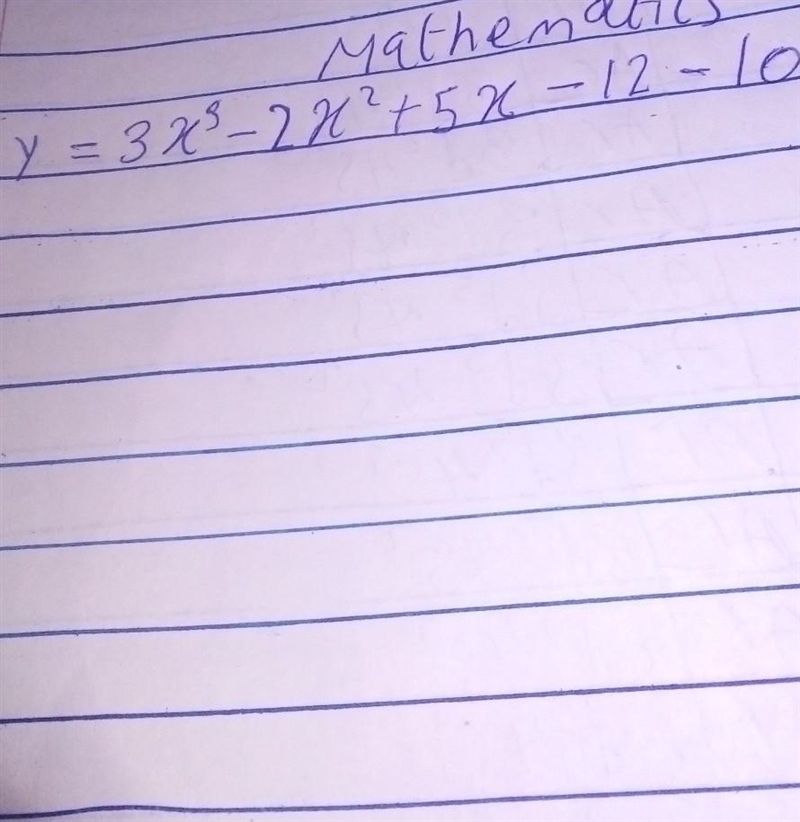 Mathematics
y = 3x³ - 2x² + 5x - 12 - 10